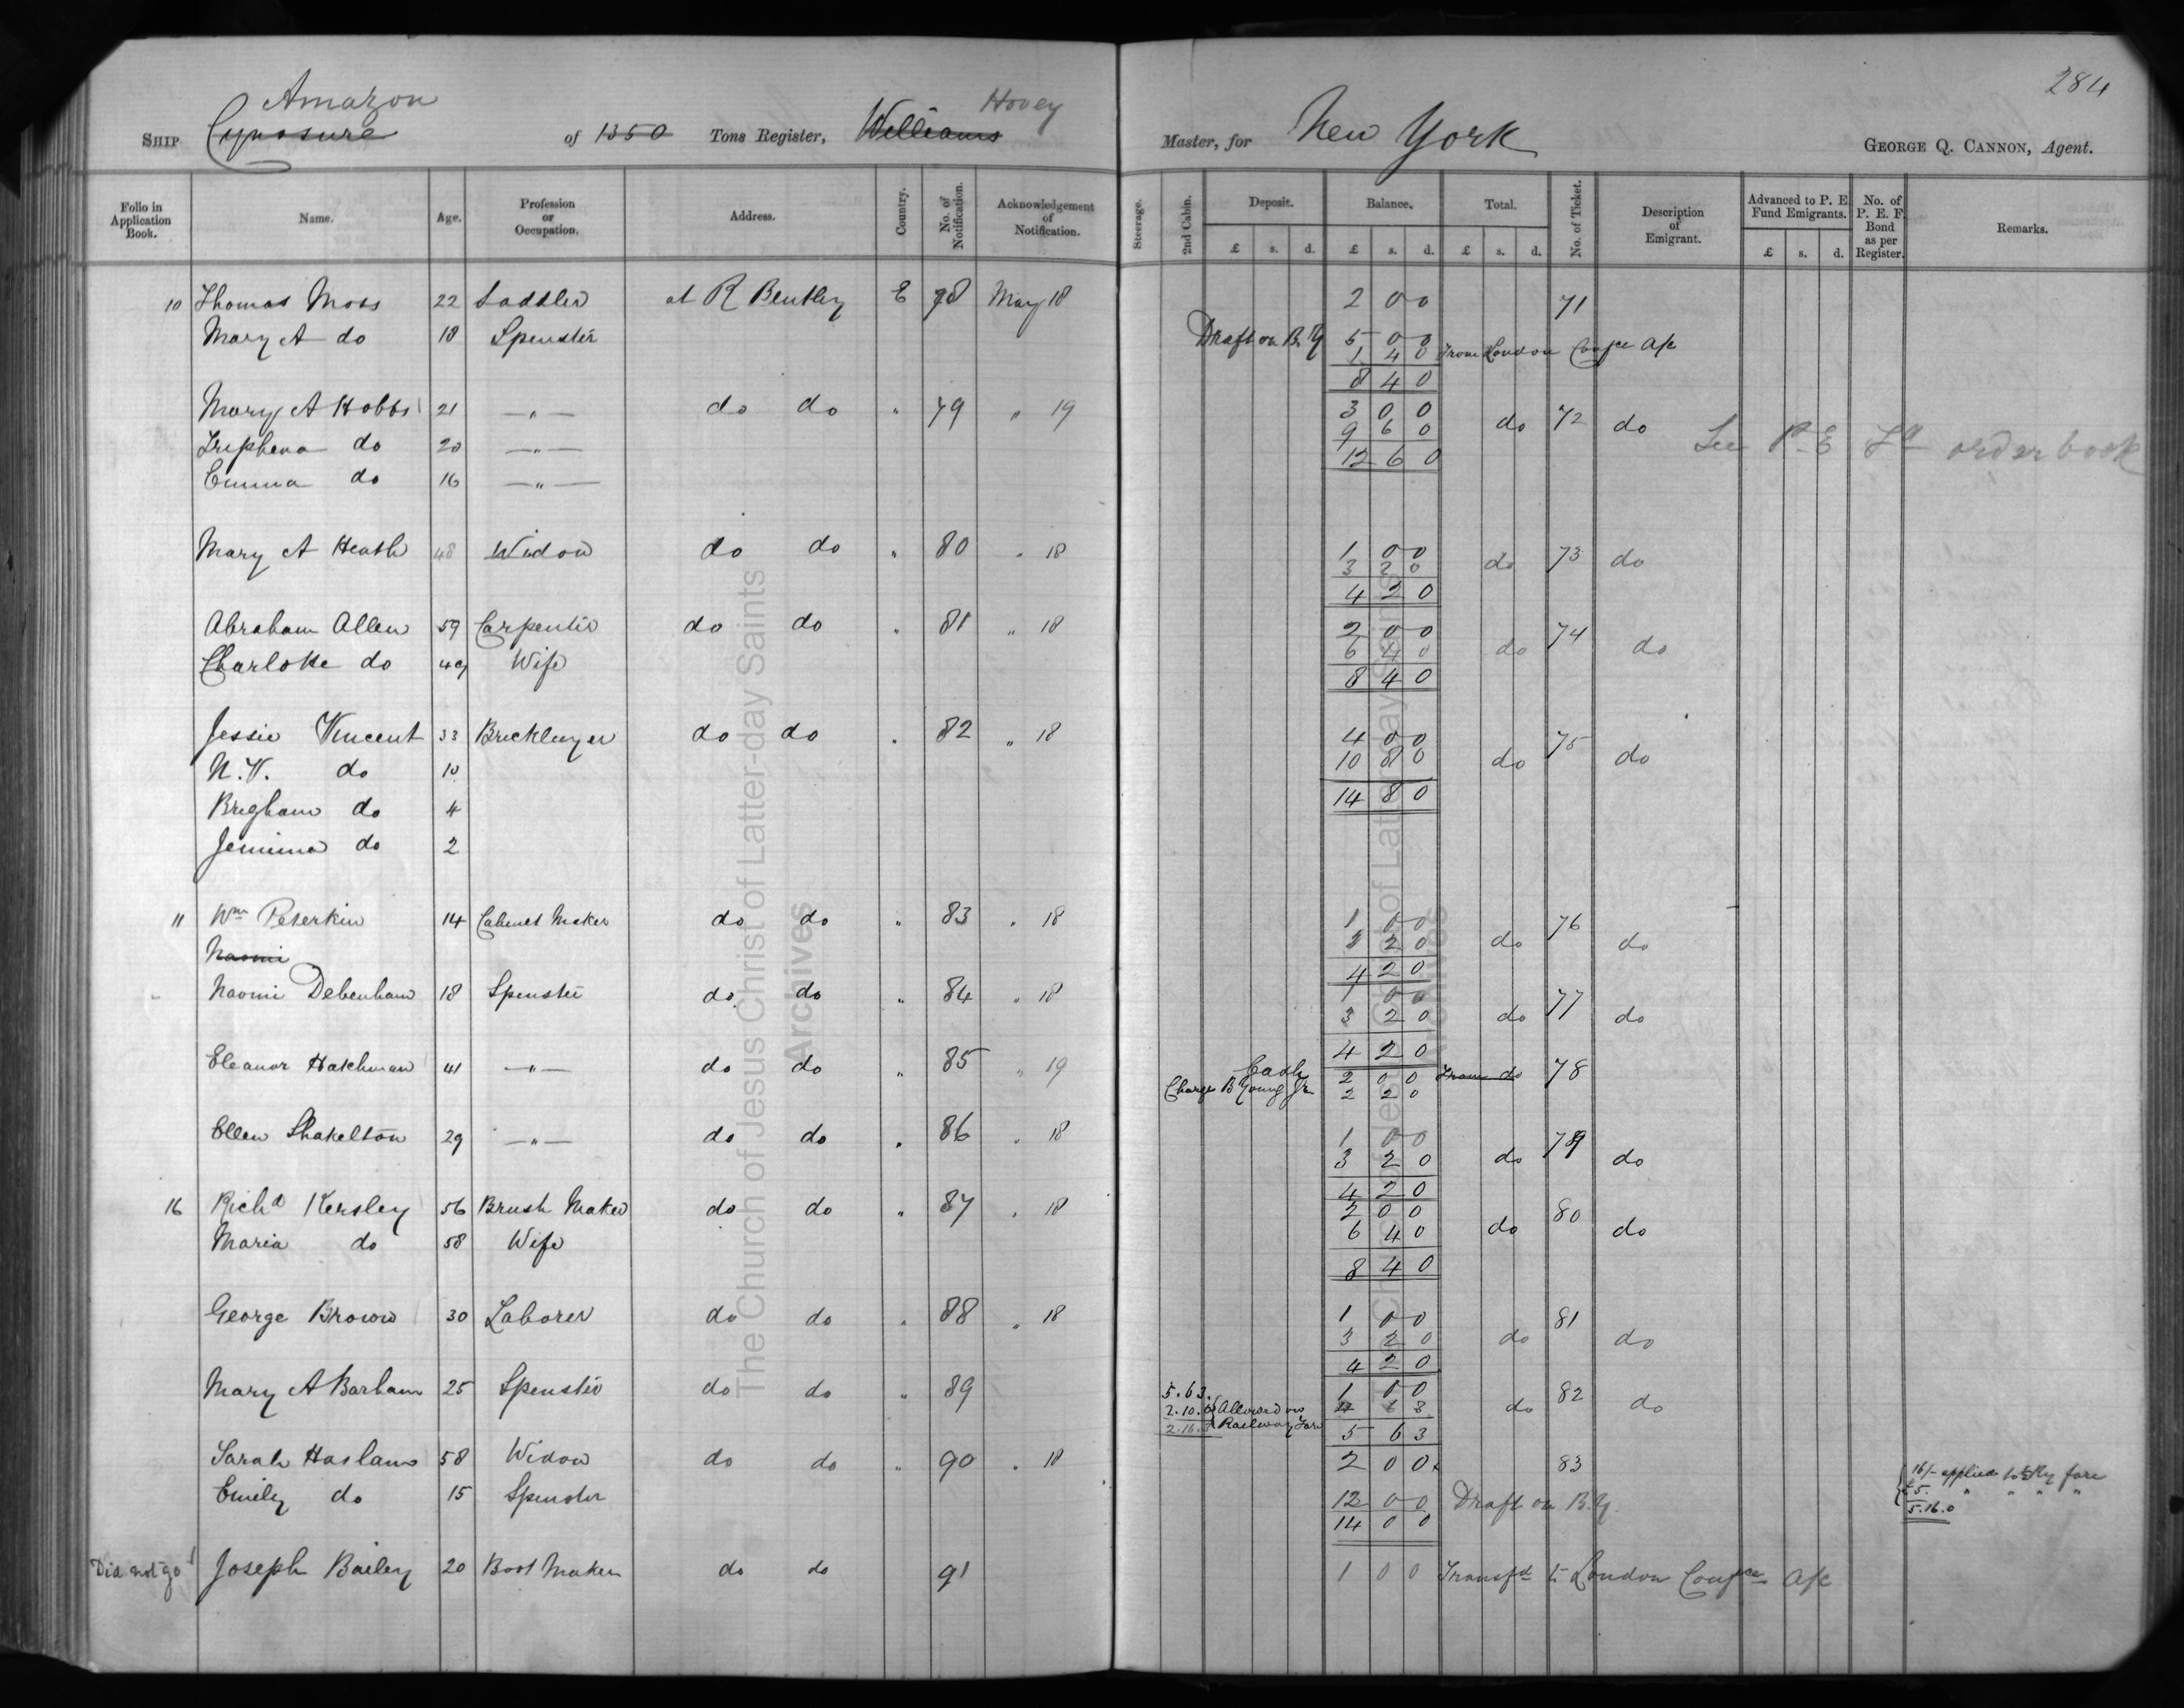 284
Amazon Hovey
SHIP Cynosure of 1350 Tons Register, Williams Master, for New York GEORGE Q. CANNON, Agent.
Folio in Application Book. Name. Age. Profession or Occupation. Address. Country. No. of Notification. Acknowledgement of Notification. Steerage. 2nd Cabin. Deposit. £ s. d. Balance. £ s. d. Total. £ s. d. No. of Ticket. Description of Emigrant. Advanced to P. E. Fund Emigrants. £ s. d. No. of P. E. F. Bond as per Register. Remarks.
10 Thomas Moss 22 Saddler at R Bentley E 78 May 18 2 0 0 71
Mary A do 18 Spenster Draft on B.Y 5 0 0
1 4 0 From London Confce A/c
8 4 0
Mary A Hobbs 21 — " — do do " 79 " 19 3 0 0 do 72 do
Triphena do 20 — " — 9 6 0 See P E Fd order book
Emma do 16 — " — 12 6 0
Mary A Heath 48 Widow do do " 80 " 18 1 0 0 do 73 do
3 2 0
4 2 0
Abraham Allen 59 Carpenter do do " 81 " 18 2 0 0 do 74 do
Charlotte do 49 Wife 6 4 0
8 4 0
Jessie Vincent 33 Bricklayer do do " 82 " 18 4 0 0 do 75 do
N.V. do 10 10 8 0
Brigham do 4 14 8 0
Jemima do 2
11 Wm Peterkin 14 Cabinet Maker do do " 83 " 18 1 0 0 do 76 do
Naomi 3 2 0
4 2 0
Naomi Debenham 18 Spenster do do " 84 " 18 1 0 0 do 77 do
3 2 0
4 2 0
Eleanor Hatchman 41 — " — do do " 85 " 19 Cash 2 0 0 From do 78
Charge B Young Jr 2 2 0
Ellen Shakelton 29 — " — do do " 86 " 18 1 0 0 do 79 do
3 2 0
4 2 0
16 Richd Kersley 56 Brush Maker do do " 87 " 18 2 0 0 do 80 do
Maria do 58 Wife 6 4 0
8 4 0
George Brown 30 Laborer do do " 88 " 18 1 0 0 do 81 do
3 2 0
4 2 0
Mary A Barham 25 Spenster do do " 89 5.6 3. 1 0 0 do 82 do
2.10.0 Allowed on 4 6 3
2.16.3 Railway Fare 5 6 3
Sarah Haslam 58 Widow do do " 90 " 18 2 0 0 83 16/- applied to Ry fare
Emily do 15 Spenster 12 0 0 Draft on B.Y. £5. " " " "
14 0 0 5.16.0
Did not go Joseph Bailey 20 Boot Maker do do 91 1 0 0 Transfd to London Confce A/c
The Church of Jesus Christ of Latter-day Saints
Archives
The Church of Jesus Christ of Latter-day Saints
Archives